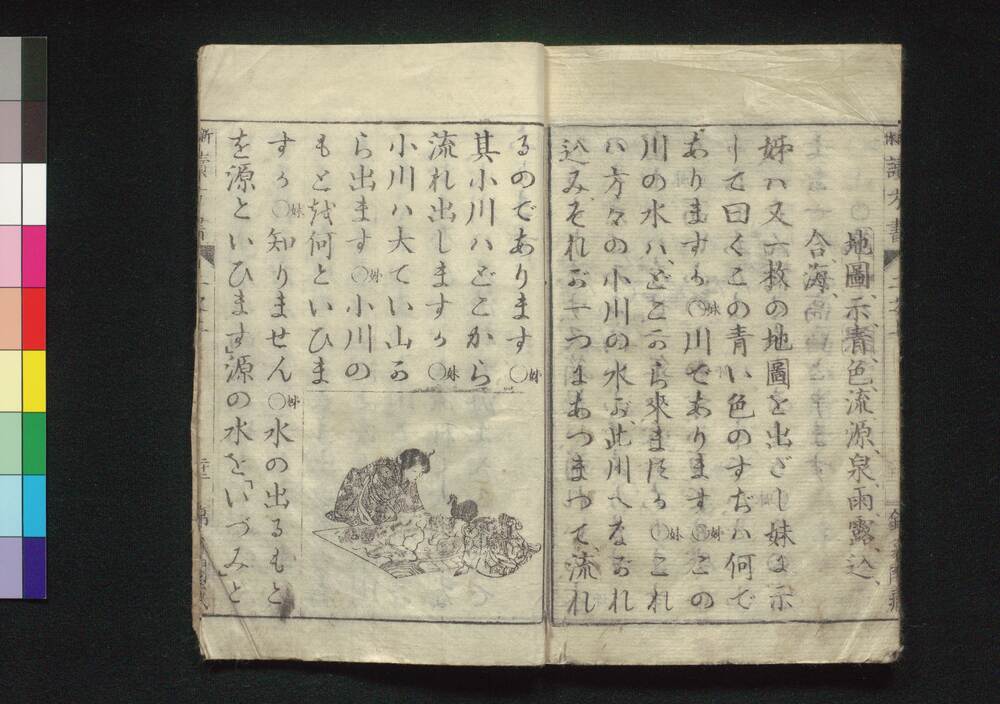 地圖、示、青、色、流、源、泉、雨、露、込、
合、海、
姊ハ又一枚の地圖を出ざし妹に示
して曰くこの青い色のすぢハ何で
ありますか○妹川であります○姊この
川の水ハ、どこから來ますか○妹これ
ハ方々の小川の水が、此川へながれ
込み、それが一つにあつまつて、流れ
るのであります○姊
其小川ハどこから
流れ出しますか○妹
小川ハ大てい山か
ら出ます○姊小川の
もとを何といひま
すか○妹知りません○姊水の出るもと
を源といひます」源の水を「いづみと
讀方書